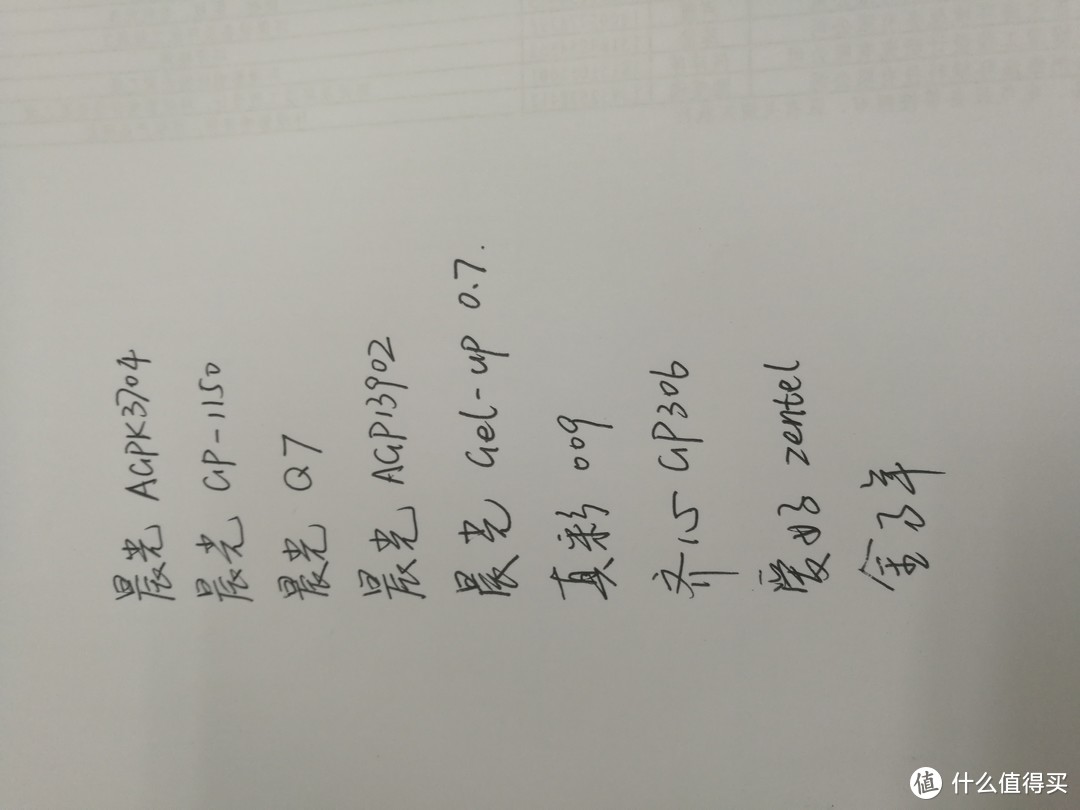 晨光 AGPK3704
晨光 GP-1150
晨光 Q7
晨光 AGP13902
晨光 Gel-up 0.7.
真彩 009
齐心 GP306
爱好 zentel
金万年
值 什么值得买